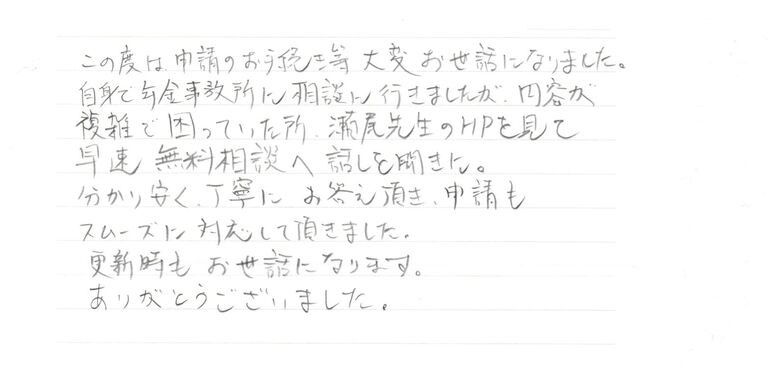 この度は申請のお手続き等 大変 お世話になりました。
自身で年金事務所に相談に行きましたが、内容が
複雑で困っていた所、瀬尾先生のHPを見て
早速 無料相談へ 話しを聞きに。
分かり安く、丁寧に お答え頂き、申請も
スムーズに 対応して頂きました。
更新時も お世話になります。
ありがとうございました。